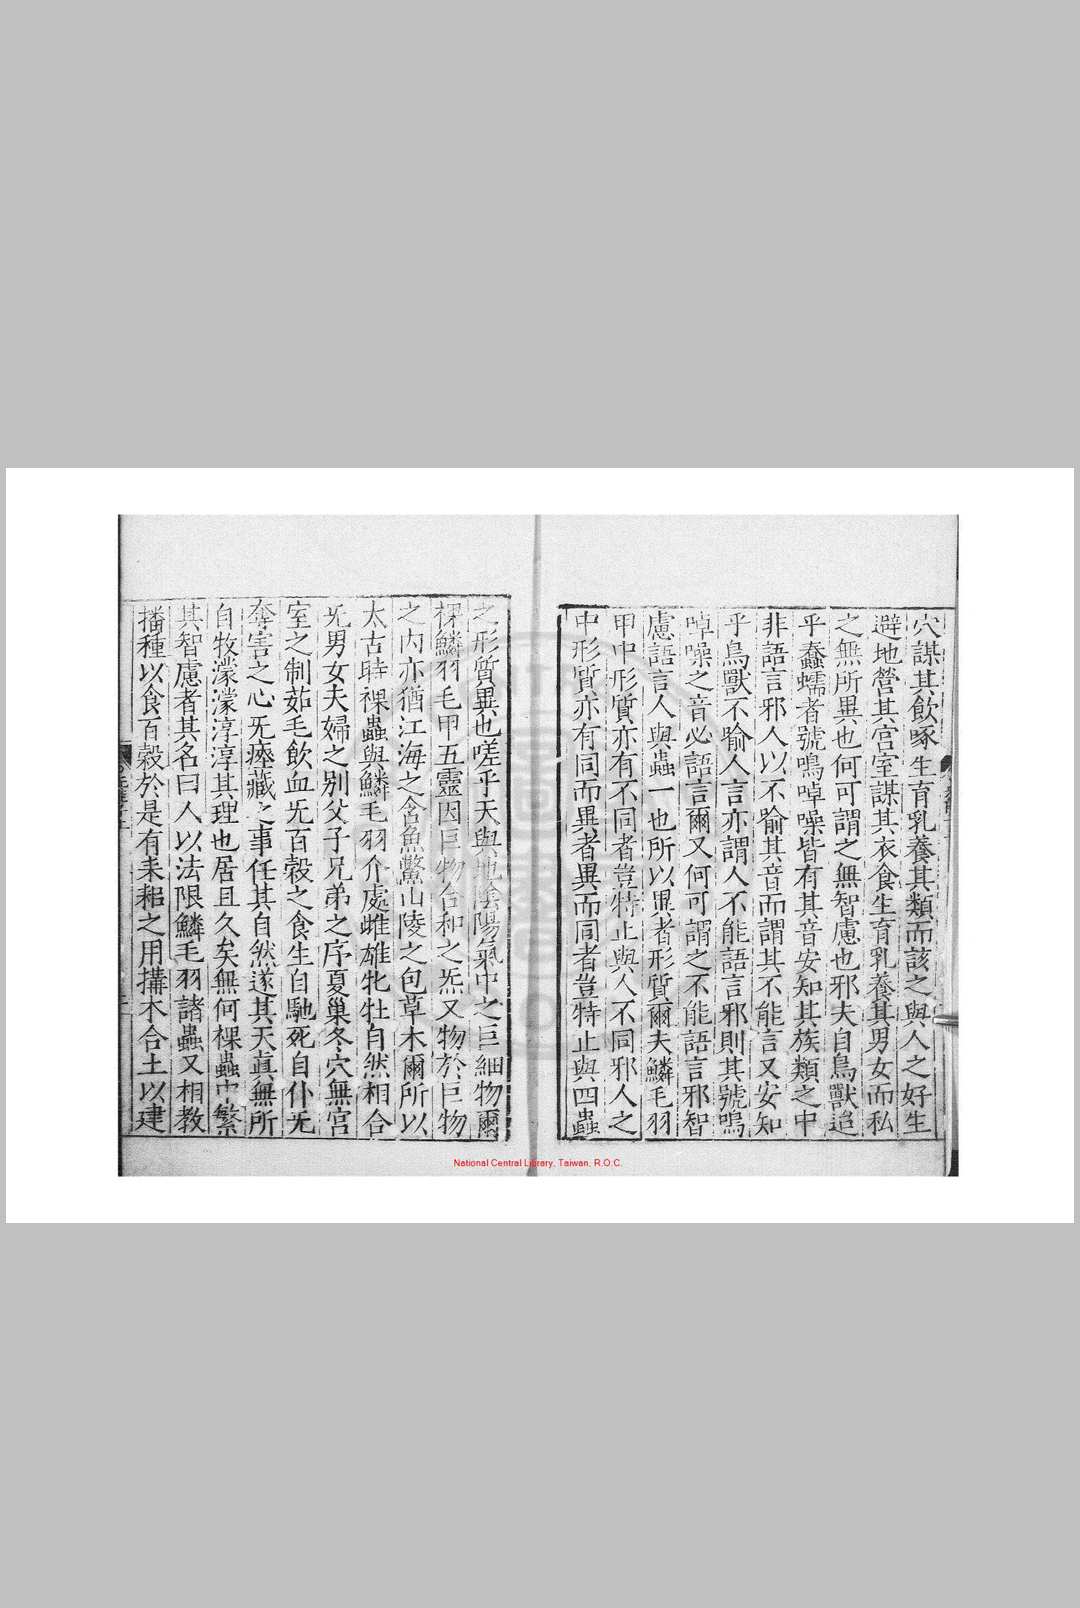 穴謀其飲啄生育乳養其類而該之與人之好生
避地營其宮室謀其衣食生育乳養其男女而私
之無所異也何可謂之無智慮也邪夫自鳥獸迨
乎蠢蠕者號鳴啅噪皆有其音安知其族類之中
非語言邪人以不喻其音而謂其不能言又安知
乎鳥獸不喻人言亦謂人不能語言邪則其號鳴
啅噪之音必語言爾又何可謂之不能語言邪智
慮語言人與蟲一也所以異者形質爾夫鱗毛羽
甲中形質亦有不同者豈特止與人不同邪人之
中形質亦有同而異者異而同者豈特止與四蟲
之形質異也嗟乎天與地陰陽氣中之巨細物爾
裸鱗羽毛甲五靈因巨物合和之炁又物於巨物
之内亦猶江海之含魚鱉山陵之包草木爾所以
太古時裸蟲與鱗毛羽介處雌雄牝牡自然相合
无男女夫婦之别父子兄弟之序夏巢冬穴無宮
室之制茹毛飲血无百穀之食生自馳死自仆无
奪害之心无瘞藏之事任其自然遂其天真無所
自牧濛濛淳淳其理也居且久矣無何裸蟲中繁
其智慮者其名曰人以法限鱗毛羽諸蟲又相教
播種以食百穀於是有耒耜之用搆木合土以建
National Central Library, Taiwan, R.O.C.